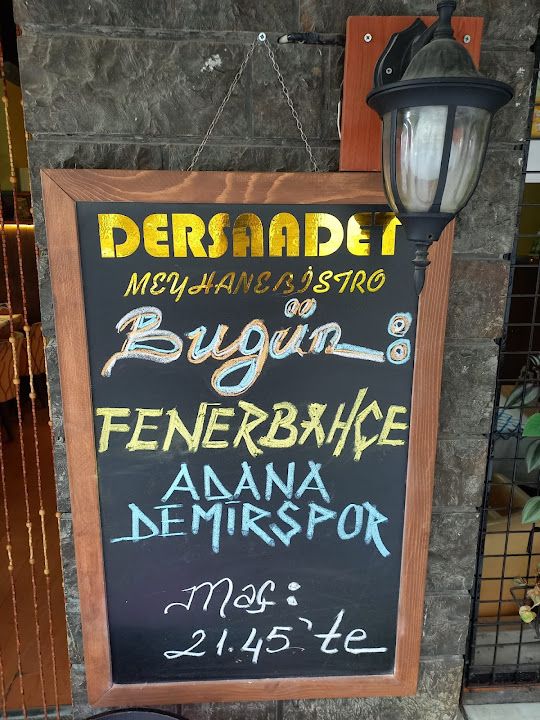 DERSAADET
MEYHANEBİSTRO
Bugün:
FENERBAHÇE
ADANA
DEMİRSPOR
Maç:
21.45'te